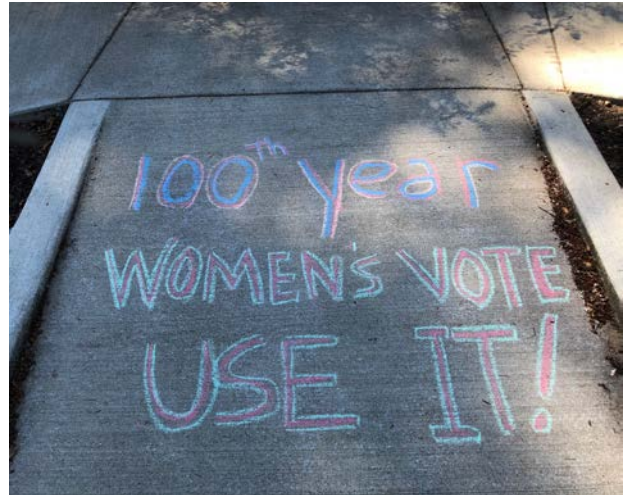 100th year
WOMEN'S VOTE
USE IT!